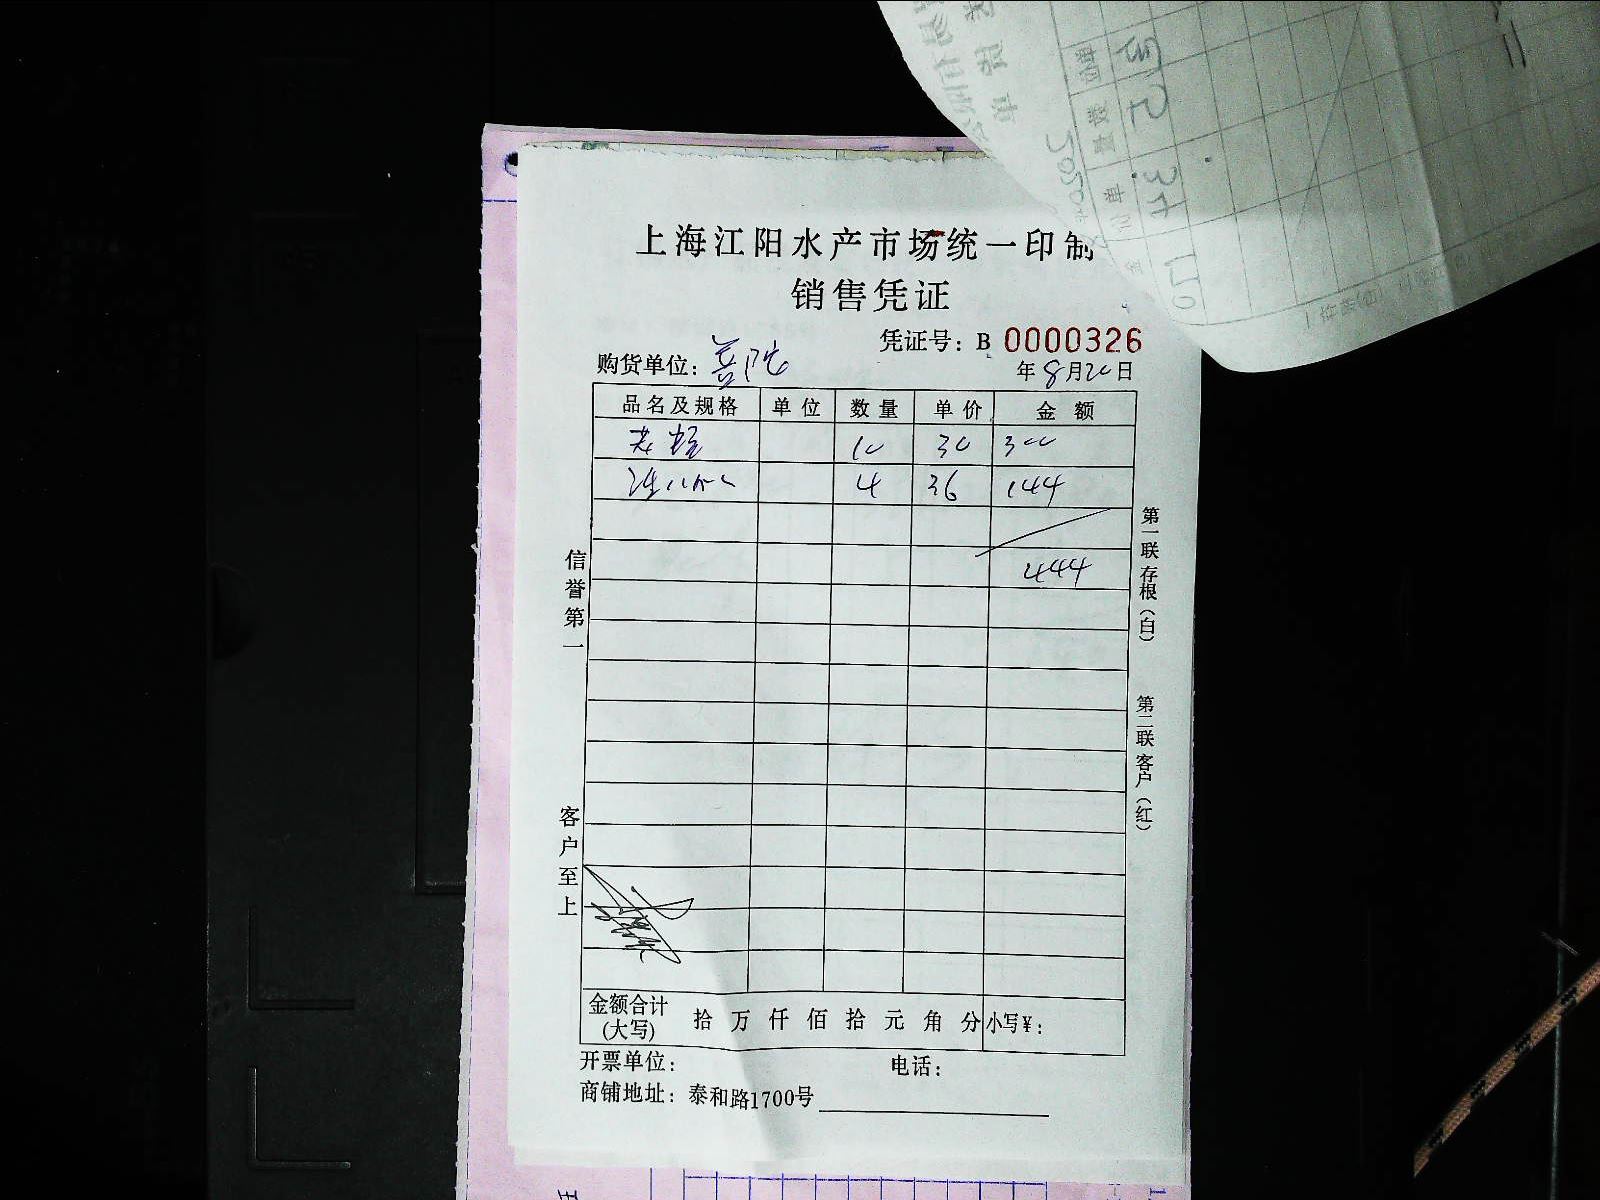 上海江阳水产市场统一印制
销售凭证
凭证号：B 0000326
购货单位：
年 8月20日
品名及规格 单位 数量 单价 金额
10 30 300
4 36 144
444
信誉第一
客户至上
第一联存根（白）
第二联客户（红）
金额合计(大写) 拾 万 仟 佰 拾 元 角 分 小写¥：
开票单位： 电话：
商铺地址：泰和路1700号